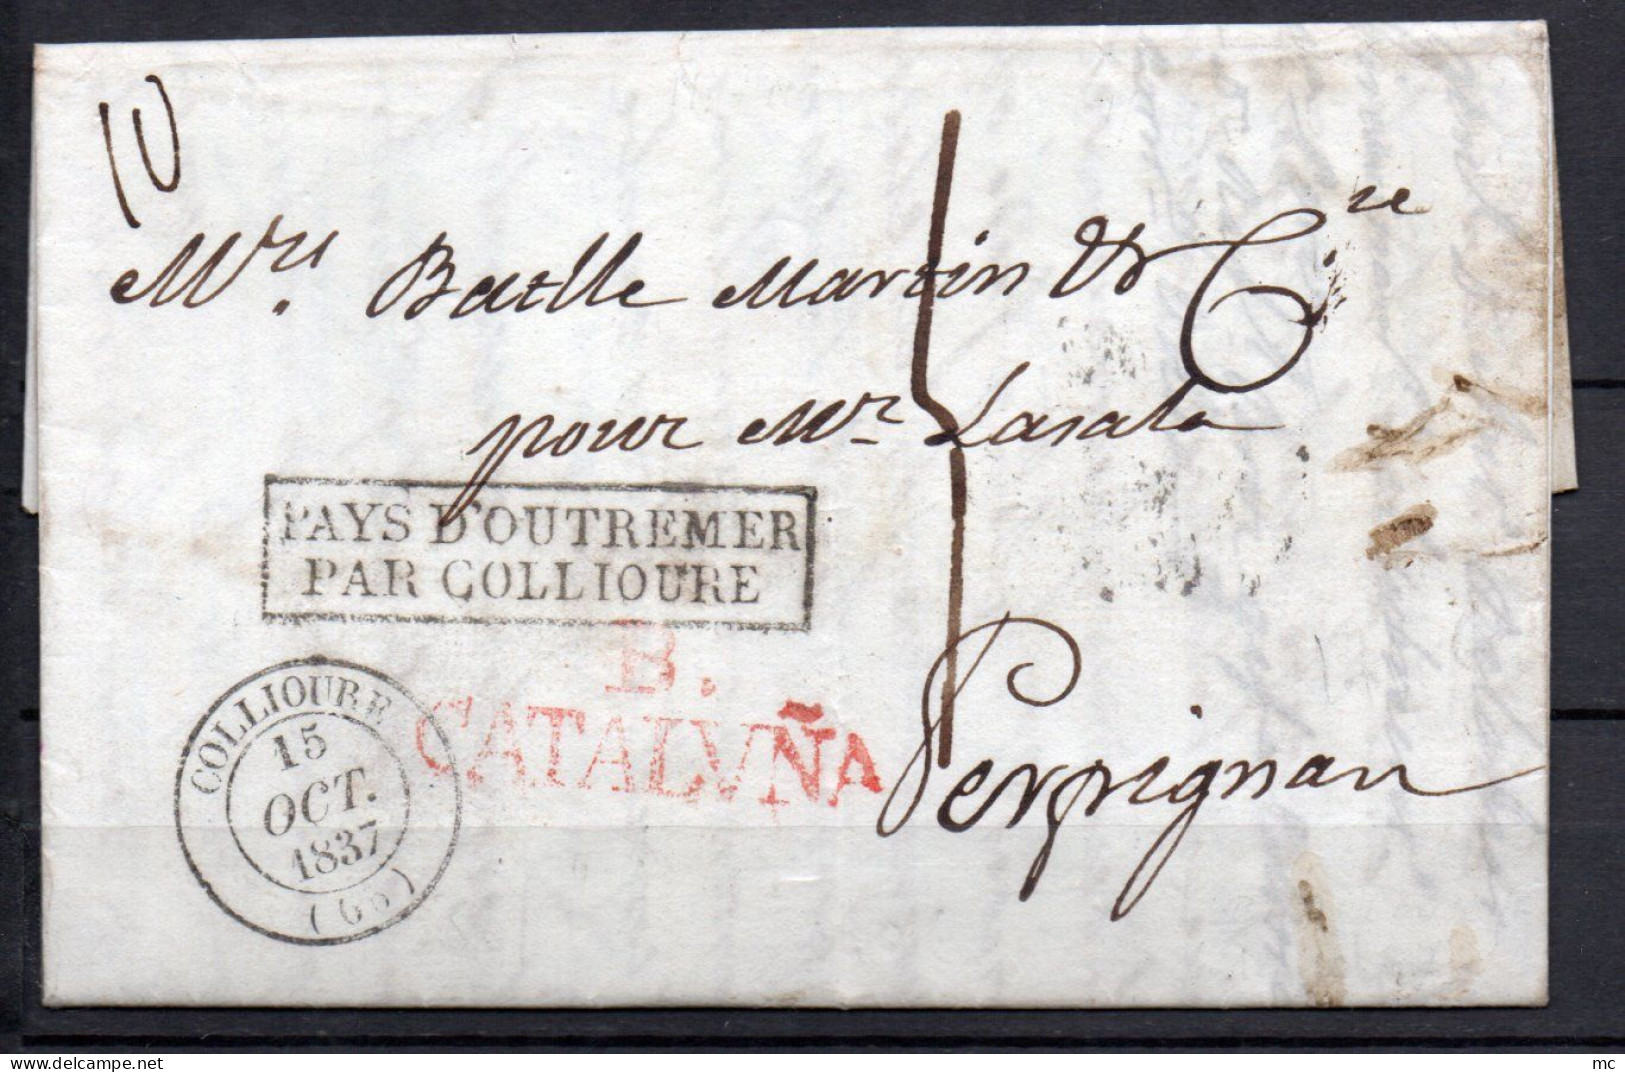 10
Mrs. Batlle Martin & Cie
pour Mr Lasala
PAYS D'OUTREMER
PAR COLLIOURE
B.
CATALVÑA
COLLIOURE
15
OCT.
1837
(65)
Perpignan
delcampe.net
mc